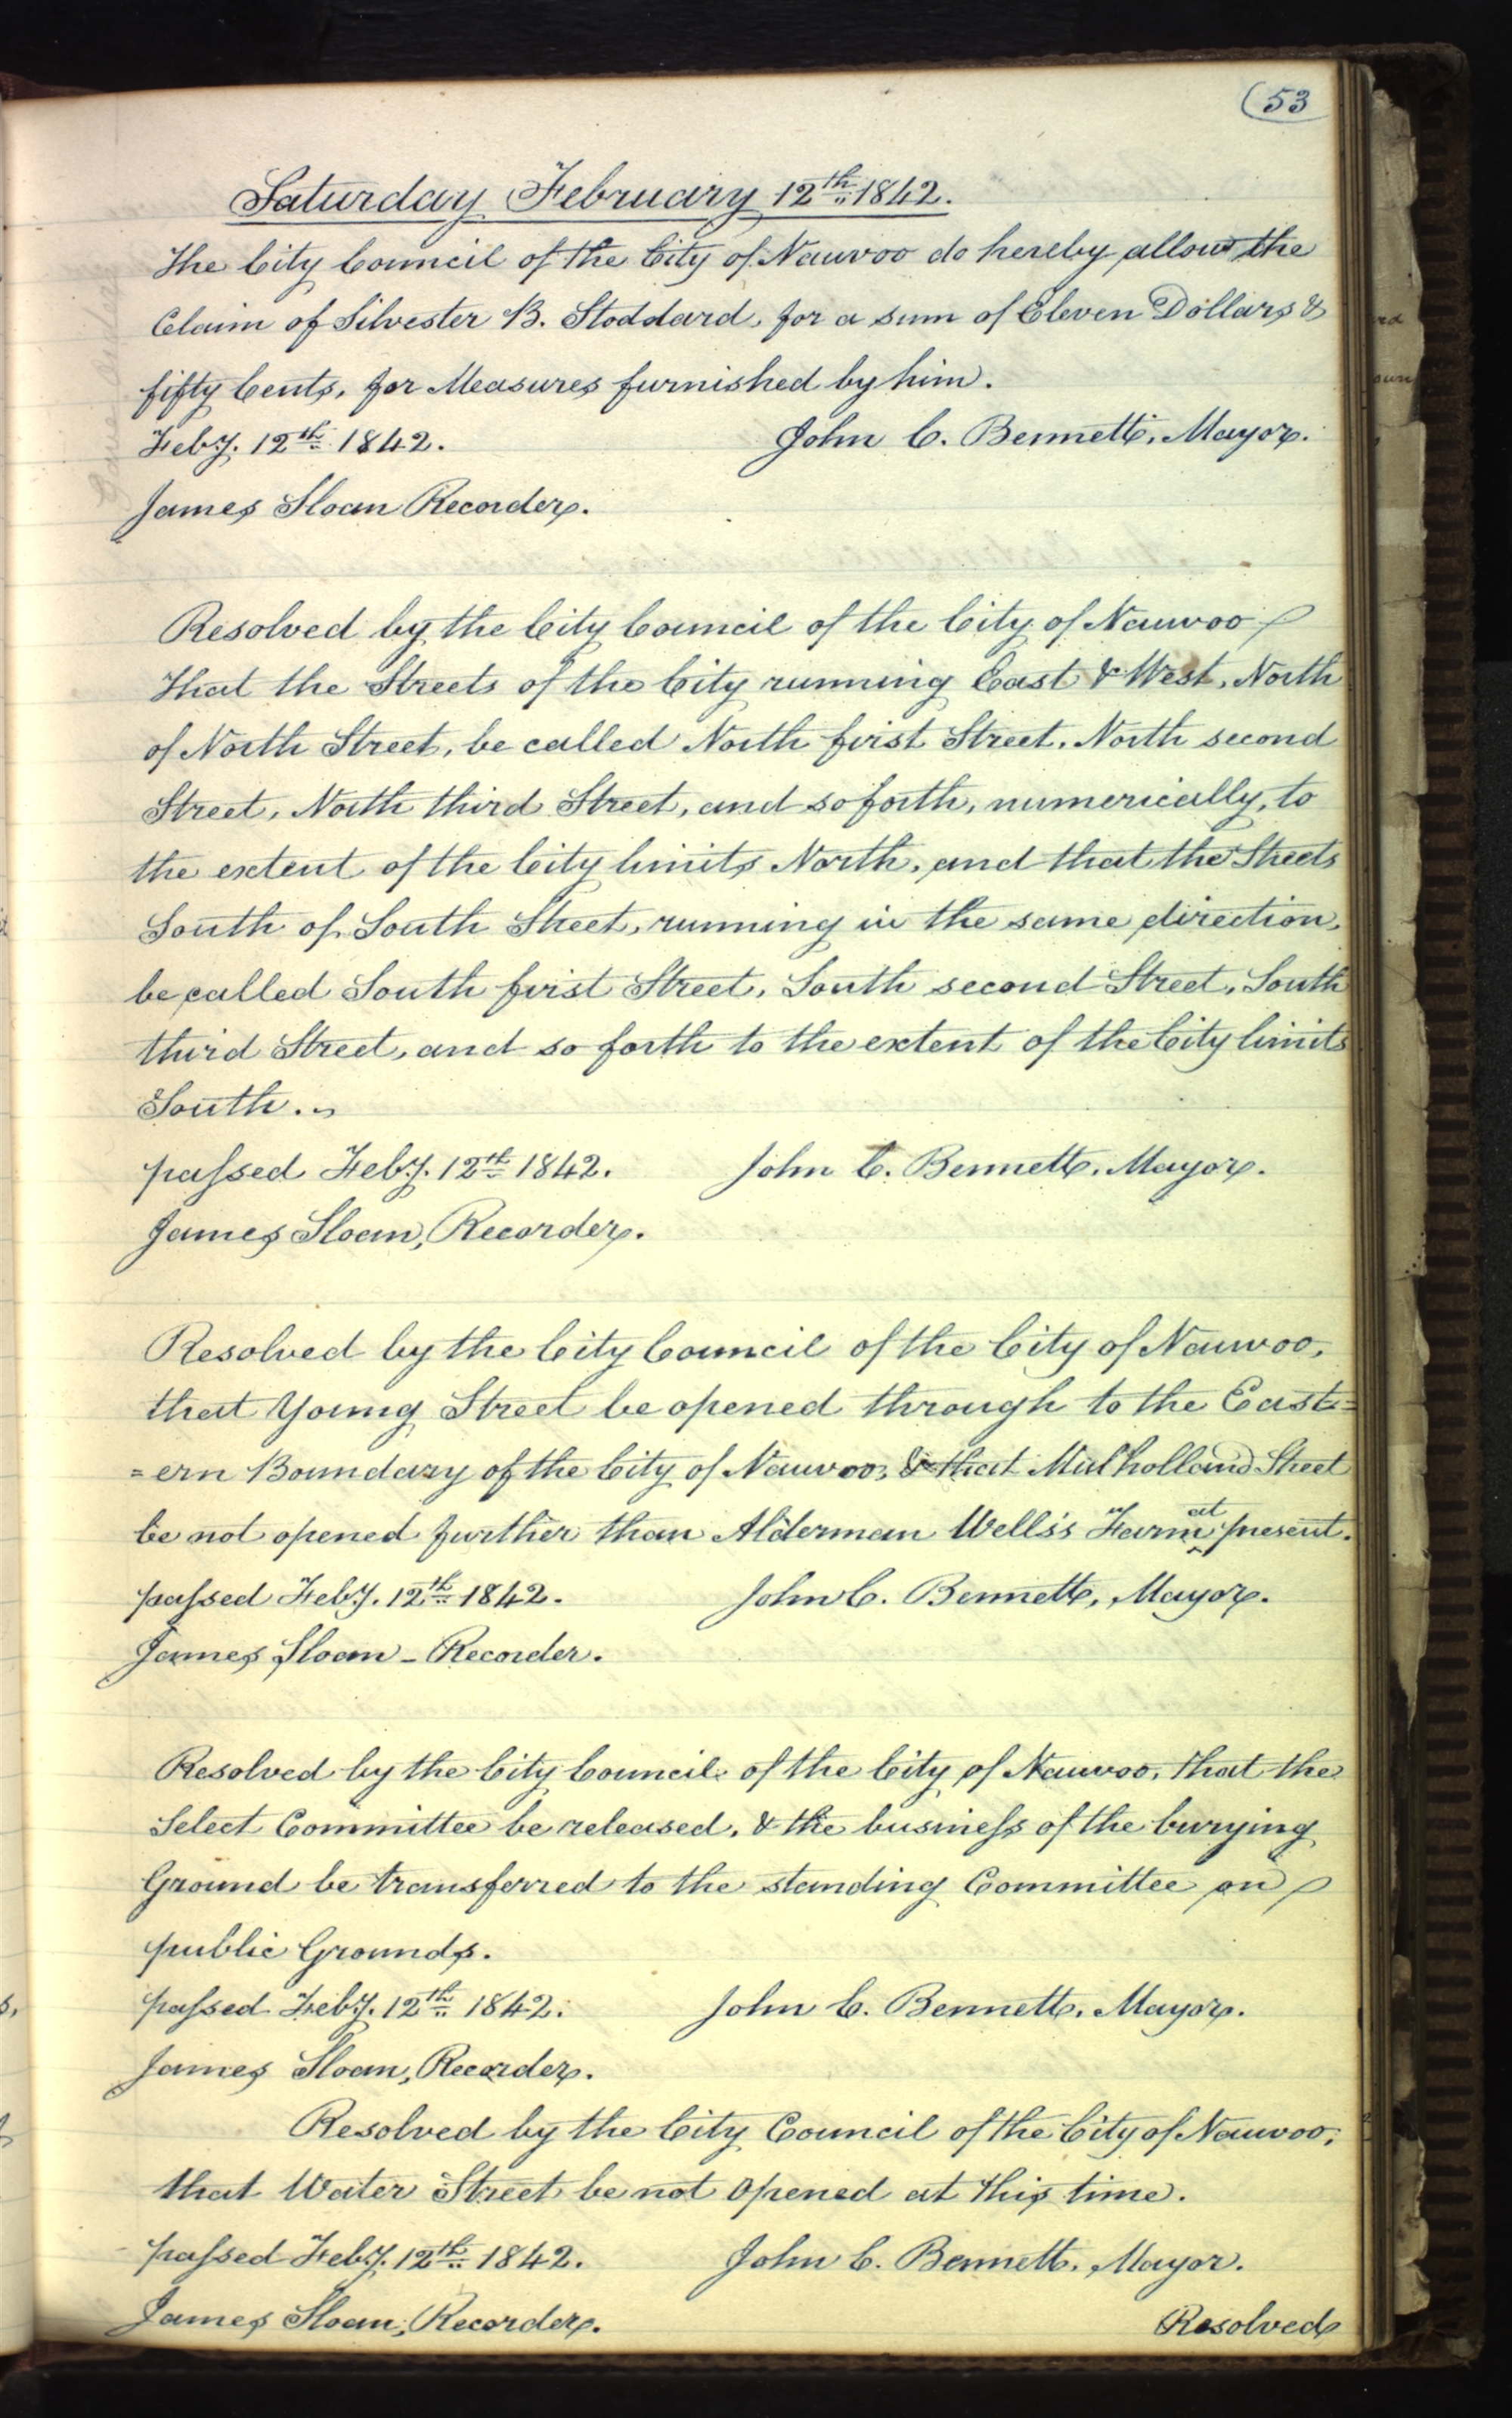 (53
Saturday February 12th 1842.
The City Council of the City of Nauvoo do hereby allow the
Claim of Silvester B. Stoddard, for a sum of Eleven Dollars &
fifty Cents, for Measures furnished by him.
Feby. 12th 1842. John C. Bennett, Mayor.
James Sloan Recorder.
Resolved by the City Council of the City of Nauvoo
That the Streets of the City running East & West, North
of North Street, be called North first Street, North second
Street, North third Street, and so forth, numerically, to
the extent of the City limits North, and that the Streets
South of South Street, running in the same direction,
be called South first Street, South second Street, South
third Street, and so forth to the extent of the City limits
South.
passed Feby. 12th 1842. John C. Bennett, Mayor.
James Sloan, Recorder.
Resolved by the City Council of the City of Nauvoo,
that Young Street be opened through to the East=
=ern Boundary of the City of Nauvoo, & that Mulholland Street
be not opened further than Alderman Wells's Farm at present.
passed Feby. 12th 1842. John C. Bennett, Mayor.
James Sloan - Recorder.
Resolved by the City Council of the City of Nauvoo, that the
Select Committee be released, & the business of the burying
Ground be transferred to the standing Committee on
public Grounds.
passed Feby. 12th 1842. John C. Bennett, Mayor.
James Sloan, Recorder.
Resolved by the City Council of the City of Nauvoo,
that Water Street be not opened at this time.
passed Feby. 12th 1842. John C. Bennett, Mayor.
James Sloan, Recorder. Resolved